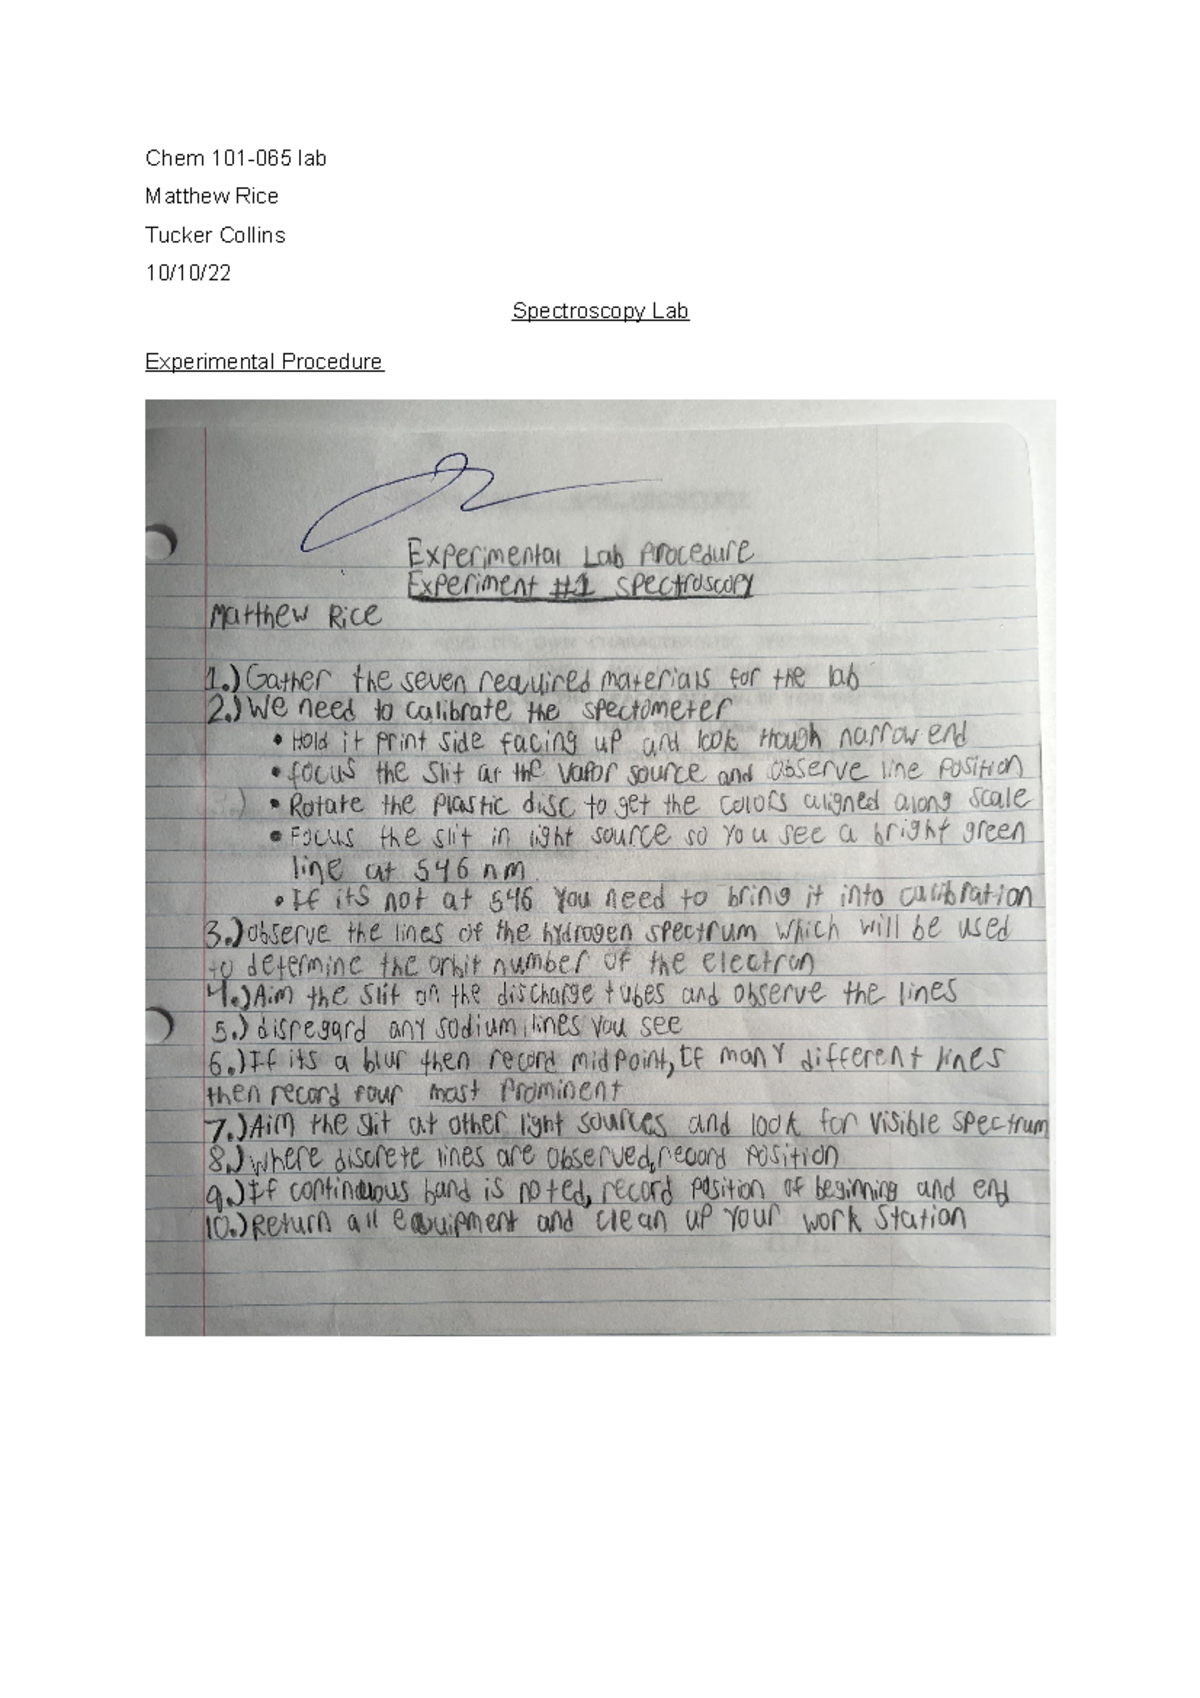 Chem 101-065 lab
Matthew Rice
Tucker Collins
10/10/22
Spectroscopy Lab
Experimental Procedure
Experimental Lab Procedure
Experiment #1 Spectroscopy
Matthew Rice
1.) Gather the seven required materials for the lab
2.) We need to calibrate the spectometer
• Hold it print side facing up and look though narrow end
• focus the slit at the vapor source and observe line position
• Rotate the plastic disc to get the colors aligned along scale
• Focus the slit in light source so you see a bright green
line at 546 nm.
• If its not at 546 you need to bring it into calibration
3.) observe the lines of the hydrogen spectrum which will be used
to determine the orbit number of the electron
4.) Aim the slit on the discharge tubes and observe the lines
5.) disregard any sodium lines you see
6.) If its a blur then record midpoint, If many different lines
then record four most prominent
7.) Aim the slit at other light sources and look for visible spectrum
8.) where discrete lines are observed, record position
9.) If continuous band is noted, record position of beginning and end
10.) Return all equipment and clean up your work station